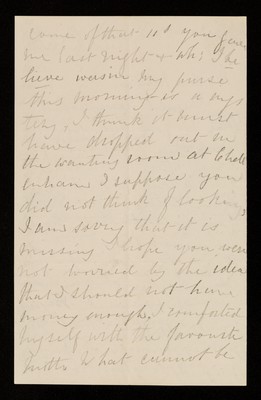 come of that 10/ you gave
me last night & wh: I be
lieve was in my purse
this morning is a mys
tery, I think it must
have dropped out in
the waiting room at Chelt
enham I suppose you
did not think of looking,
I am sorry that it is
missing I hope you were
not worried by the idea
that I should not have
money enough, I comforted
myself with the favourite
motto What cannot be